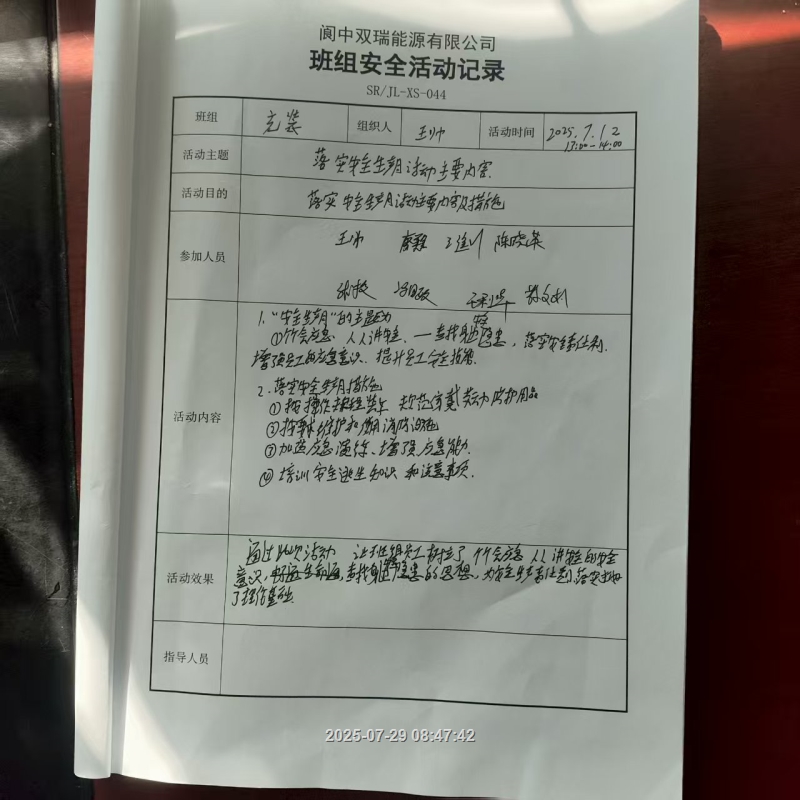 阆中双瑞能源有限公司
班组安全活动记录
SR/JL-XS-044
班组 充装 组织人 王帅 活动时间 2025.7.12
13:00-14:00
活动主题 落实安全生产月活动主要内容
活动目的 落实安全生产月活动主要内容及措施
参加人员
王帅 陈晓英
活动内容
1."安全生产月"的主题为
①个个会应急、人人讲安全、—查找身边安全隐患，落实安全责任制.
增强员工的应急意识、提升员工安全技能.
2.落实安全生产月措施
①按操作规程装车 规范穿戴劳动防护用品
②按要求维护和使用消防设施
③加强应急演练、增强应急能力.
④培训安全逃生知识和注意事项.
活动效果
通过此次活动 让班组员工树立了个个会应急 人人讲安全的安全
意识，畅通生命通道，查找身边隐患的思想，为安全生产责任制落实
了理论基础
指导人员
2025-07-29 08:47:42